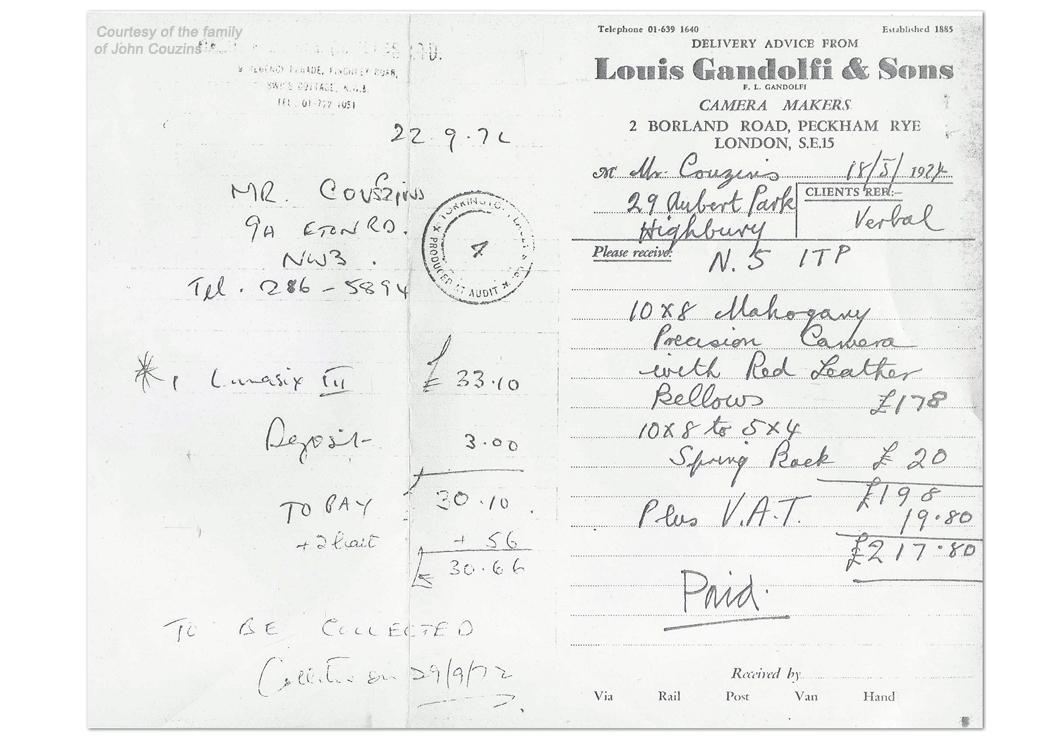 Courtesy of the family
of John Couzins
TD.
PARADE, FINCHLEY ROAD,
COTTAGE, N.W.3.
TEL. 01-722 1051
22.9.72
MR. COUSZINS
9A ETON RD.
NW3.
Tel. 286-5894
TORRINGTON
PRODUCED AT AUDIT
4
* 1 Lunasix III £ 33.10
Deposit 3.00
TO PAY 30.10
+ 56
£ 30.66
TO BE COLLECTED
29/9/72
Telephone 01-639 1640 Established 1885
DELIVERY ADVICE FROM
Louis Gandolfi & Sons
F. L. GANDOLFI
CAMERA MAKERS
2 BORLAND ROAD, PECKHAM RYE
LONDON, S.E.15
M Mr. Couzins 18/5/1974
29 Aubert Park
Highbury
CLIENTS REF:—
Verbal
Please receive: N.5 1TP
10x8 Mahogany
Precision Camera
with Red Leather
Bellows £178
10x8 to 5x4
Spring Back £ 20
£198
Plus V.A.T. 19.80
£217.80
Paid.
Received by
Via Rail Post Van Hand